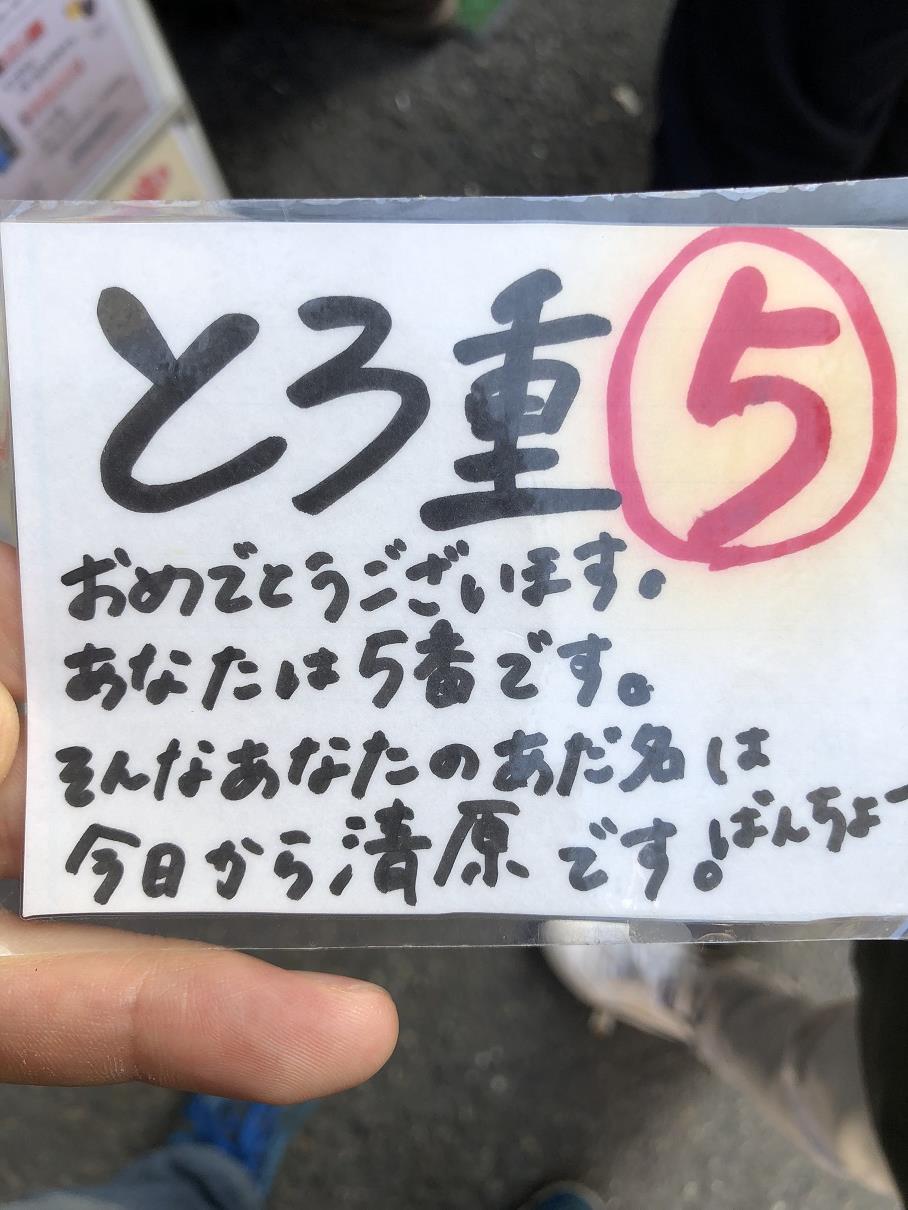 とろ重 ⑤
おめでとうございます。
あなたは5番です。
そんなあなたのあだ名は
今日から清原です。!ばんちょー